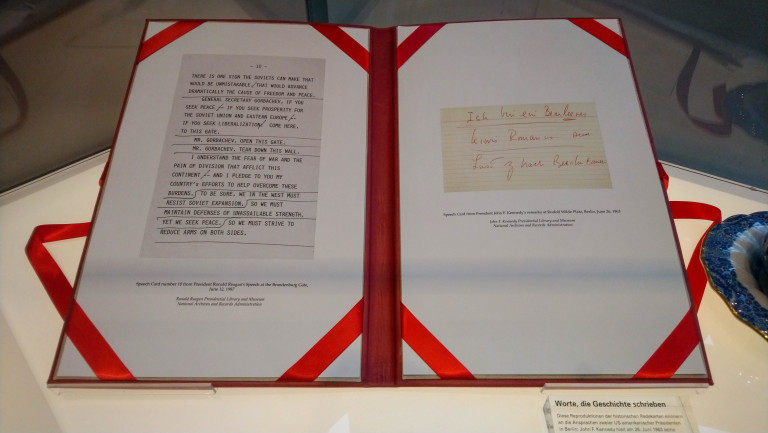 - 18 -
THERE IS ONE SIGN THE SOVIETS CAN MAKE THAT
WOULD BE UNMISTAKABLE, THAT WOULD ADVANCE
DRAMATICALLY THE CAUSE OF FREEDOM AND PEACE.
GENERAL SECRETARY GORBACHEV, IF YOU
SEEK PEACE -- IF YOU SEEK PROSPERITY FOR
THE SOVIET UNION AND EASTERN EUROPE --
IF YOU SEEK LIBERALIZATION: COME HERE,
TO THIS GATE.
MR. GORBACHEV, OPEN THIS GATE.
MR. GORBACHEV, TEAR DOWN THIS WALL.
I UNDERSTAND THE FEAR OF WAR AND THE
PAIN OF DIVISION THAT AFFLICT THIS
CONTINENT -- AND I PLEDGE TO YOU MY
COUNTRY'S EFFORTS TO HELP OVERCOME THESE
BURDENS. TO BE SURE, WE IN THE WEST MUST
RESIST SOVIET EXPANSION. SO WE MUST
MAINTAIN DEFENSES OF UNASSAILABLE STRENGTH.
YET WE SEEK PEACE. SO WE MUST STRIVE TO
REDUCE ARMS ON BOTH SIDES.
Speech Card number 18 from President Ronald Reagan's Speech at the Brandenburg Gate,
June 12, 1987
Ronald Reagan Presidential Library and Museum
National Archives and Records Administration
Ish bin ein Bearleener
kiwis Romanus sum
Lust z nach Bearlin
Speech Card from President John F. Kennedy's remarks at Rudolf Wilde Platz, Berlin, June 26, 1963
John F. Kennedy Presidential Library and Museum
National Archives and Records Administration
Worte, die Geschichte schrieben
Diese Reproduktionen der historischen Redekarten erinnern
an die Ansprachen zweier US-amerikanischer Präsidenten
in Berlin. John F. Kennedy hielt am 26. Juni 1963 seine